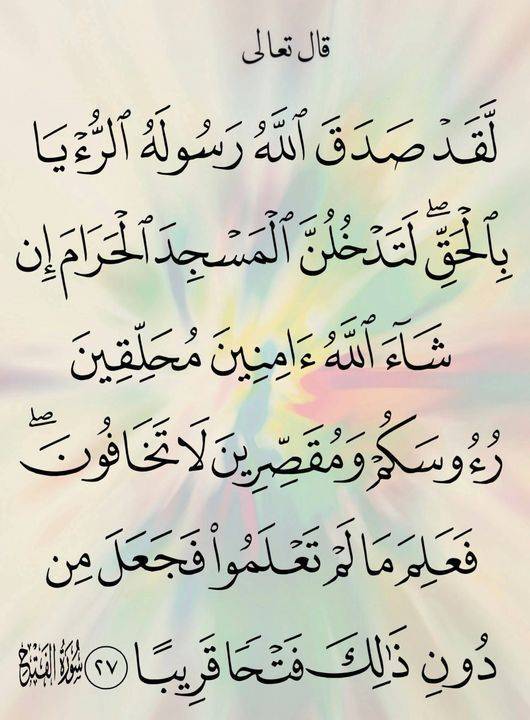 قال تعالى
لَّقَدۡ صَدَقَ ٱللَّهُ رَسُولَهُ ٱلرُّءۡيَا
بِٱلۡحَقِّۖ لَتَدۡخُلُنَّ ٱلۡمَسۡجِدَ ٱلۡحَرَامَ إِن
شَآءَ ٱللَّهُ ءَامِنِينَ مُحَلِّقِينَ
رُءُوسَكُمۡ وَمُقَصِّرِينَ لَا تَخَافُونَۖ
فَعَلِمَ مَا لَمۡ تَعۡلَمُواْ فَجَعَلَ مِن
دُونِ ذَٰلِكَ فَتۡحٗا قَرِيبًا ٢٧ سُورَةُ الفَتْحِ